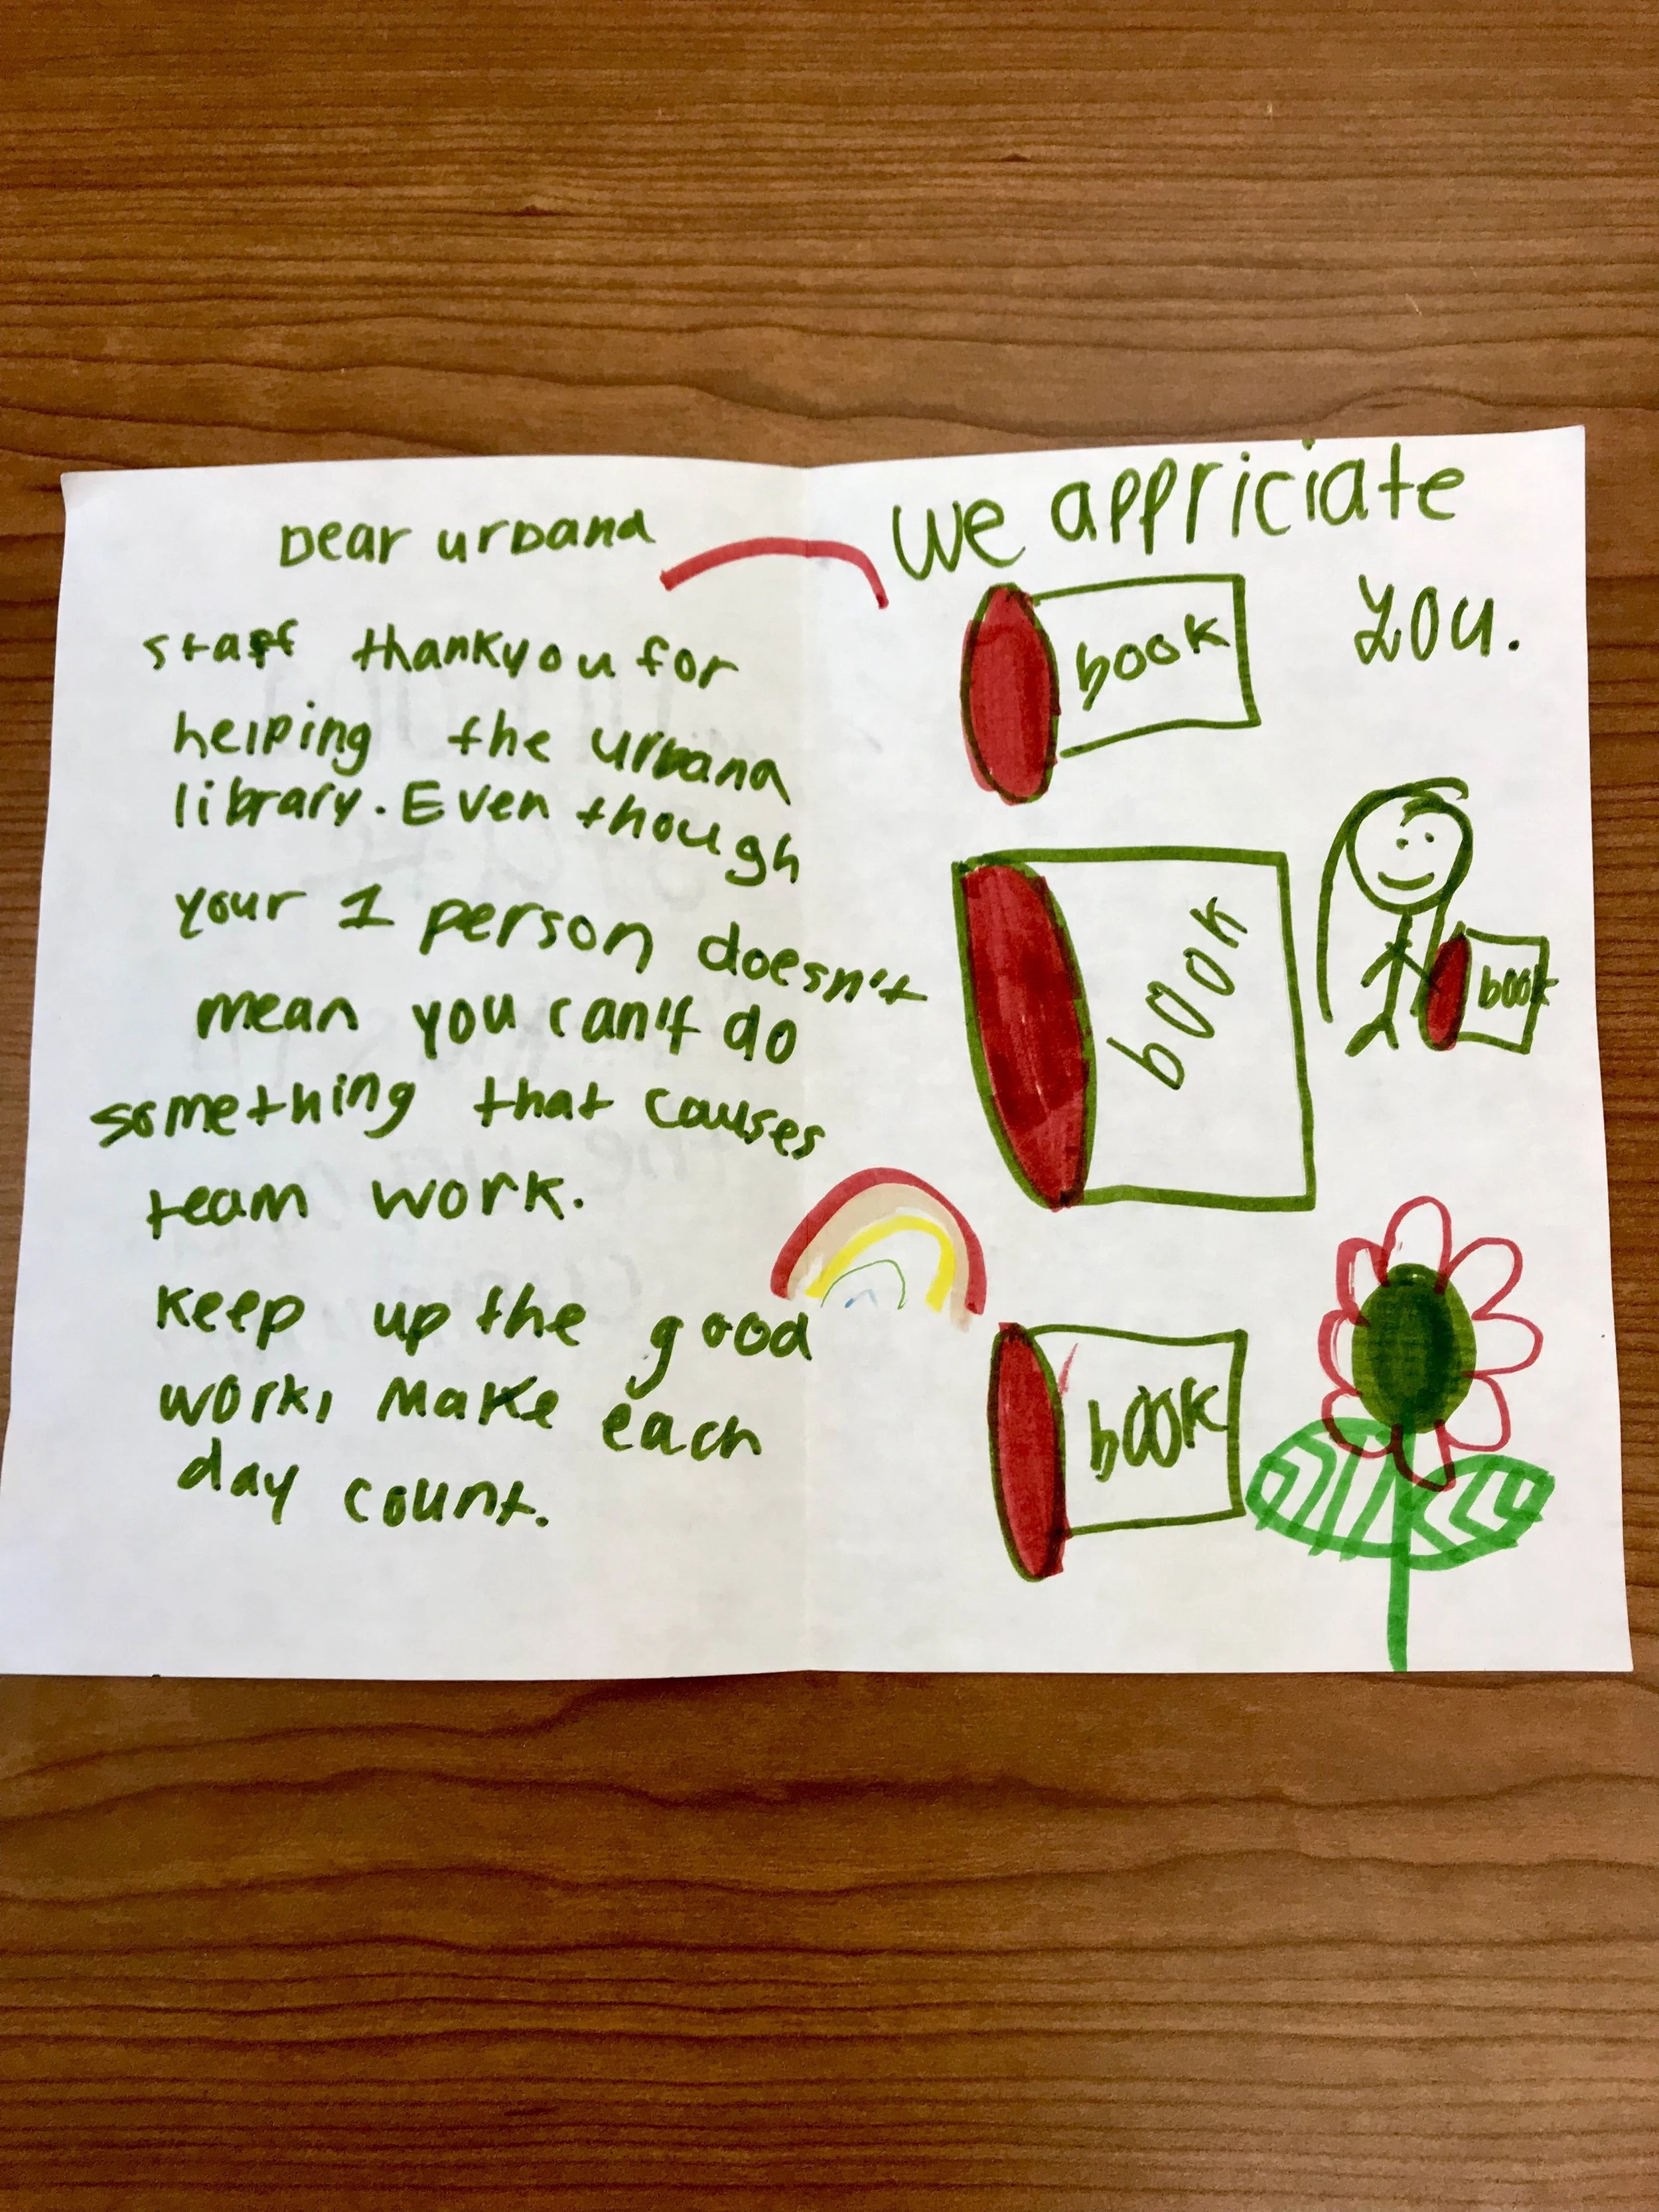 Dear urbana
staff thankyou for
helping the urbana
library. Even though
your 1 person doesn't
mean you can't do
something that causes
team work.
keep up the good
work, Make each
day count.
We appriciate
you.
book
book
book
book